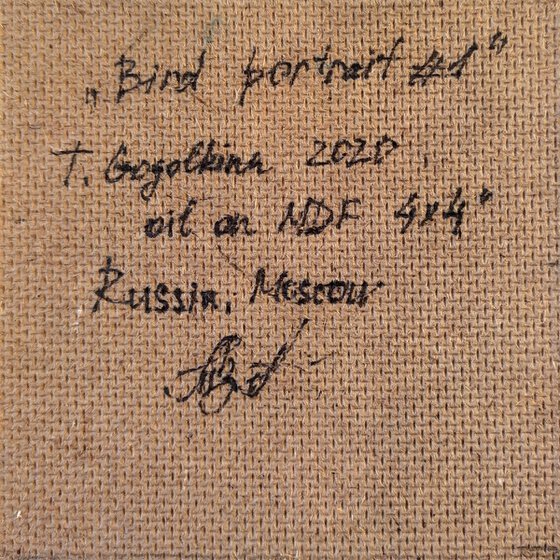 „Bird portrait #1"
T. Gogolkina 2020.
oil on MDF 4x4"
Russia, Moscow